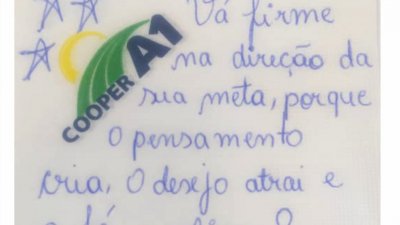 Vá firme
na direção da
COOPER A1
sua meta, porque
o pensamento
cria, O desejo atrai e